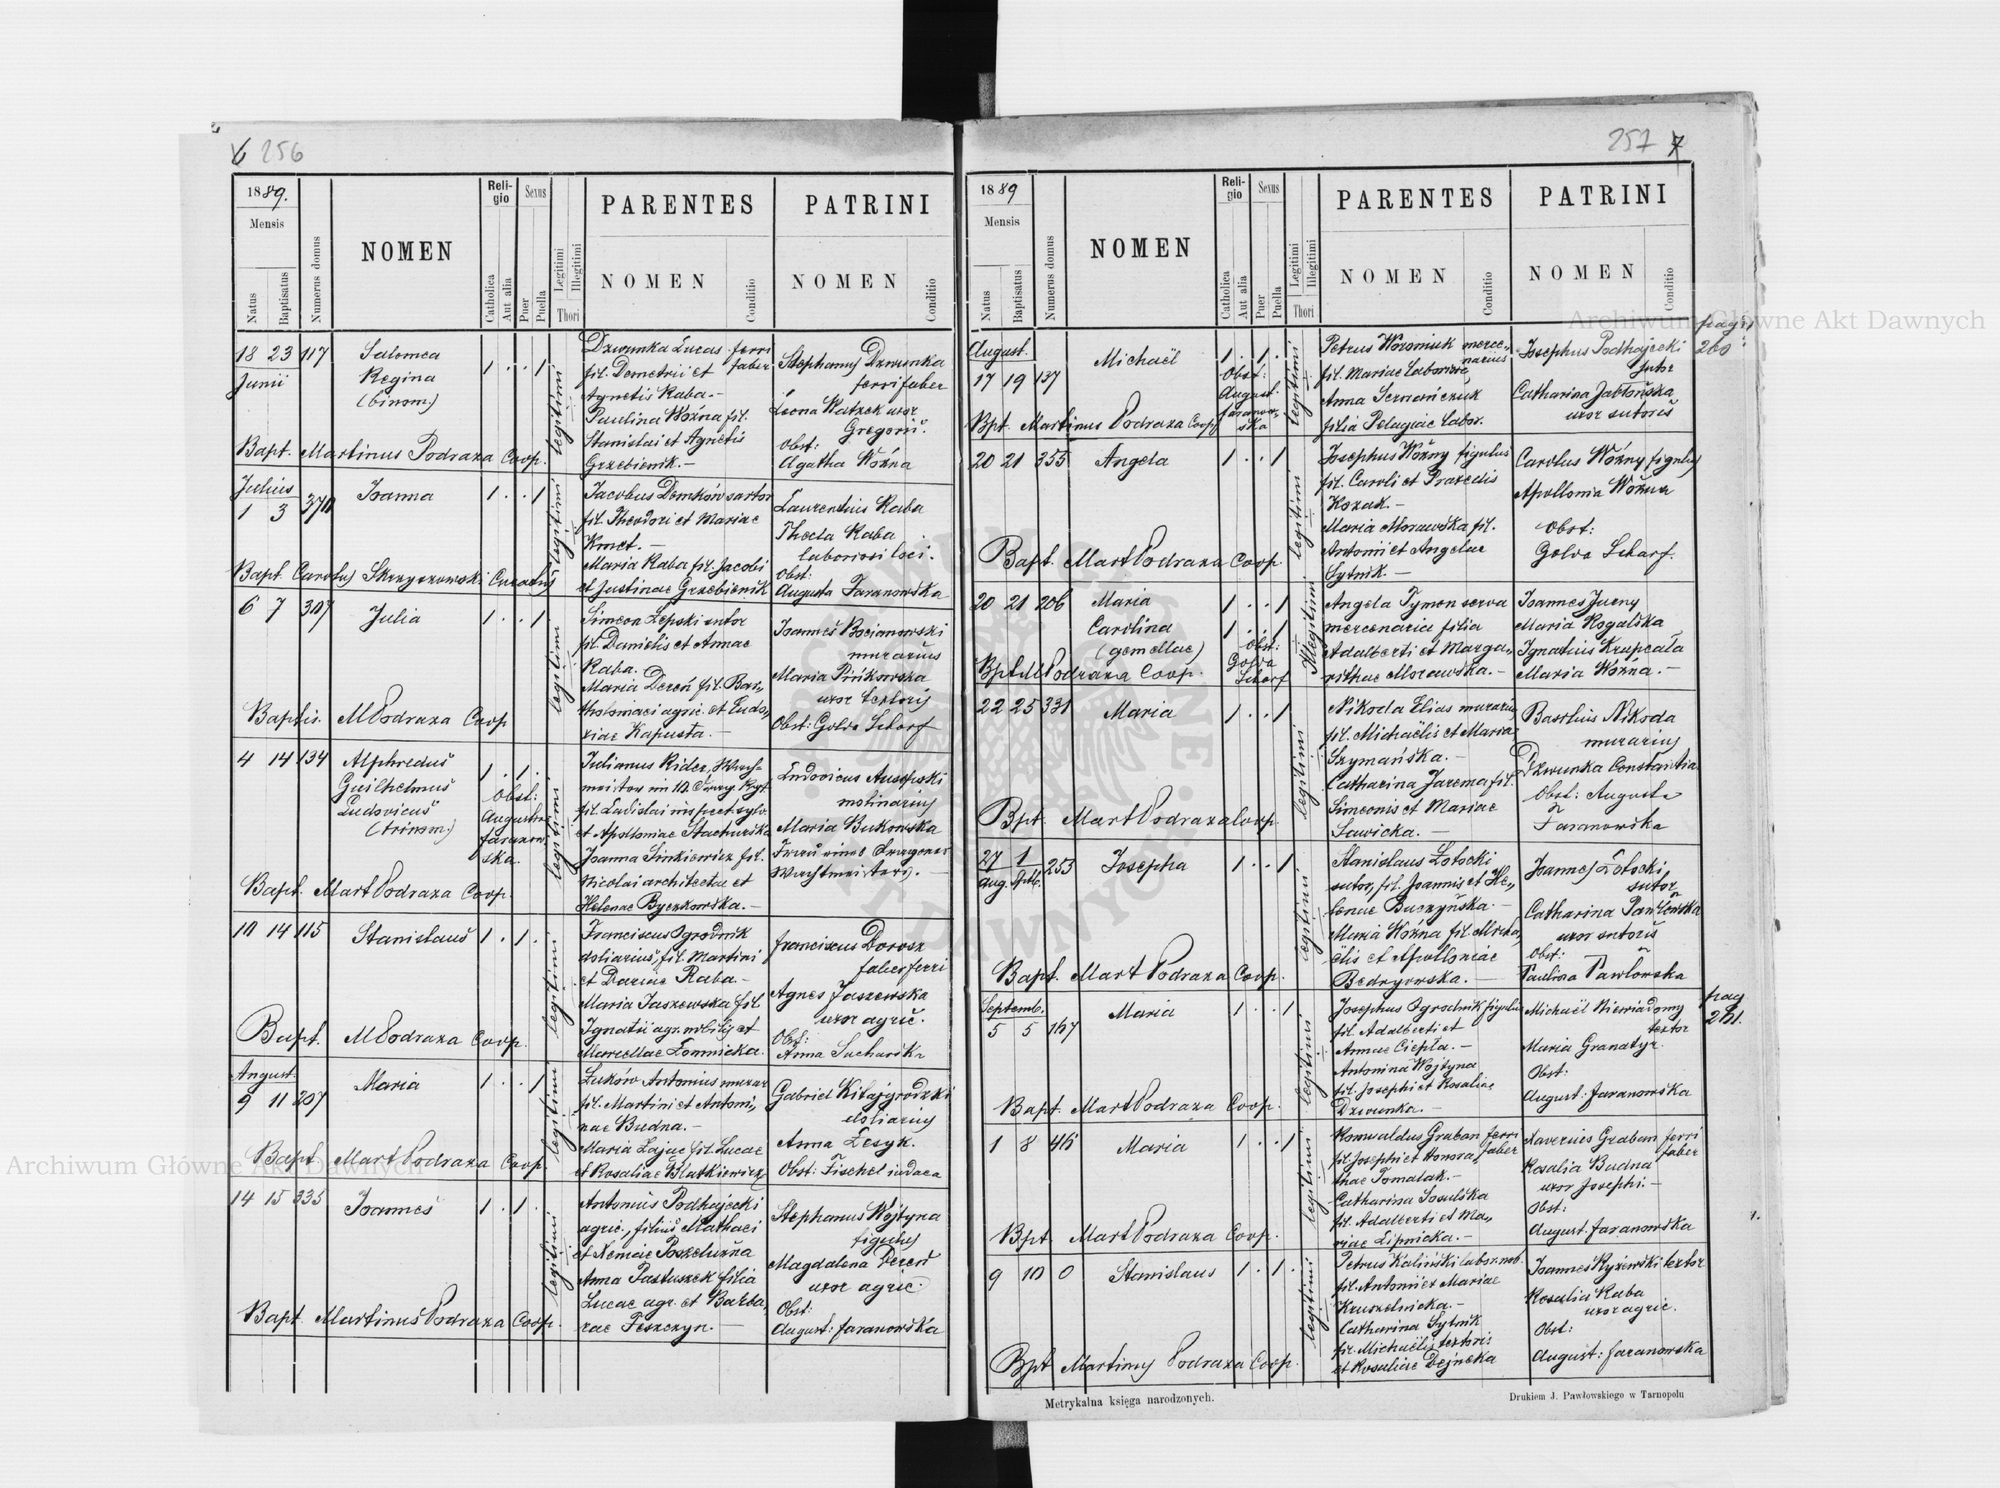 6 256
1889.
Mensis
Natus
Baptisatus
Numerus domus
NOMEN
Religio
Catholica
Aut alia
Sexus
Puer
Puella
Legitimi
Illegitimi
Thori
PARENTES
NOMEN
Conditio
PATRINI
NOMEN
Conditio
18 23 117
Junii
Salomea
Regina
(binom.)
1 . . 1
legitimi
Dzwunka Lucas ferri
fil. Demetrii et faber
Agnetis Raba.-
Paulina Woźna fil.
Stanislai et Agnetis
Grzebienik.-
Stephanus Dzwunka
ferri faber
Leona Watzek uxor
Gregorii.
Obst:
Agatha Woźna
Bapt. Martinus Podraza Coop.
Julius
1 3 370
Joanna
1 . . 1
legitimi
Jacobus Domków sartor
fil. Theodori et Mariae
Kmet.-
Maria Raba fil. Jacobi
et Justinae Grzebienik
Laurentius Raba
Thecla Raba
laboriosi loci.
Obst:
Augusta Faranowska
Bapt. Carolus Skrzyszowski Curatus
6 7 307
Julia
1 . . 1
legitimi
Simeon Lepski sutor
fil. Danielis et Annae
Raba.
Maria Dereń fil. Bar-
tholomaei agric. et Eudo-
xiae Kapusta.-
Joannes Bocianowski
murarius
Maria Pińkowska
uxor textoris
Obst: Golda Scharf
Baptis. M Podraza Coop
4 14 134
Alphredus
Guilhelmus
Ludovicus
(trinom.)
1 . 1 .
Obst:
Augustina
Faranow-
ska.
legitimi
Julianus Rider, Wach-
fil. Ladislai inspect. sylv.
et Apolloniae Stachurska
Joanna Sinkiewicz fil.
Nicolai architectae et
Helenae Byczkowska.-
Ludovicus Ausepski
molinarius
Maria Bukowska
Frau eines Dragoner
Wachtmeisters.-
Bapt. Mart Podraza Coop
10 14 115
Stanislaus
1 . 1 .
legitimi
Franciscus Ogrodnik
doliarius, fil. Martini
et Dariae Raba.-
Maria Jaszewska fil.
Ignatii agr. nobilis et
Marcellae Łomnicka.
Franciscus Dorosz
faber ferri
Agnes Jaszewska
uxor agric.
Obst:
Anna Sucharska
Bapt. M Podraza Coop.
August.
9 11 207
Maria
1 . . 1
legitimi
Łuków Antonius murar
fil. Martini et Antoni-
nae Budna.-
Maria Zając fil. Lucae
et Rosaliae Blatkiewicz
Gabriel Kitajgrodzki
doliarius
Anna Lesyk.
Obst: Fischel iudaea
Bapt Mart Podraza Coop.
14 15 335
Joannes
1 . 1 .
legitimi
Antonius Podhajecki
agric., filius Mathaei
et Xeniae Poszeluźna
Anna Pastuszek filia
Lucae agr. et Barba-
rae Feszczyn.-
Stephanus Wojtyna
figulus
Magdalena Dereń
uxor agric.
Obst:
August: Faranowska
Bapt Martinus Podraza Coop.
257 7
1889
Mensis
Natus
Baptisatus
Numerus domus
NOMEN
Religio
Catholica
Aut alia
Sexus
Puer
Puella
Legitimi
Illegitimi
Thori
PARENTES
NOMEN
Conditio
PATRINI
NOMEN
Conditio
pag:
260
August.
17 19 137
Michaël
1 . 1 .
Obst:
August.
Faranow-
ska
legitimi
Petrus Wozoniuk merce-
narius
fil. Mariae Laboriosae
filia Pelagiae labor.
Josephus Podhajecki
sutor
Catharina Jabłońska
uxor sutoris
Bpt. Martinus Podraza Coop
20 21 355
Angela
1 . . 1
legitimi
Josephus Woźny figulus
fil. Caroli et Praxedis
Kozak.-
Maria Morawska fil.
Antonii et Angelae
Sytnik.-
Carolus Woźny figulus
Apollonia Woźna
Obst:
Golda Scharf.
Bapt. Mart Podraza Coop.
20 21 206
Maria
Carolina
(gemellae)
1 . . 1
1 . . 1
Obst:
Golda
Scharf
Illegitimi
Angela Tymon serva
mercenaria filia
Adalberti et Marga-
rithae Morawska.-
Joannes Jueny
Maria Rogalska
Ignatius Krupcała
Maria Woźna.-
Bpt M Podraza Coop.
22 25 331
Maria
1 . . 1
legitimi
Nikoda Elias murarius
fil. Michaëlis et Mariae
Szymańska.-
Catharina Jarema fil.
Simeonis et Mariae
Sawicka.-
Basilius Nikoda
murarius
Dzwunka Constantia
Obst: Augusta
Faranowska
Bpt. Mart Podraza Coop.
27 1 253
Aug. Sptb.
Josepha
1 . . 1
legitimi
Stanislaus Zołocki
sutor, fil. Joannis et He-
lenae Buczyńska.-
Maria Woźna fil. Micha-
ëlis et Apolloniae
Bedryowska.-
Joannes Zołocki
sutor
Catharina Pawłowska
uxor sutoris
Obst:
Paulina Pawłowska
Bapt. Mart Podraza Coop.
pag
261.
Septemb.
5 5 167
Maria
1 . . 1
legitimi
Josephus Ogrodnik figulus
fil. Adalberti et
Annae Ciepła.-
Antonina Wojtyna
fil. Josephi et Rosaliae
Dzwunka.-
Michaël Niewiadomy
textor
Maria Granatyr.
Obst:
August: Faranowska
Bapt. Mart Podraza Coop.
1 8 46
Maria
1 . . 1
legitimi
Romualdus Graban ferri
fil. Josephi et Honora- faber
thae Tomalak.-
Catharina Sosulska
fil. Adalberti et Ma-
riae Lipnicka.-
Xaverius Graban ferri
faber
Rosalia Budna
uxor Josephi.-
Obst:
August. Faranowska
Bpt. Mart Podraza Coop.
9 10 0
Stanislaus
1 . 1 .
legitimi
Petrus Kaliński labor. nob.
fil. Antonii et Mariae
Kruszelnicka.-
Catharina Sytnik
fil. Michaëlis textoris
et Rosaliae Dejneka
Joannes Ryżewski textor
Rosalia Raba
uxor agric.
Obst:
August: Faranowska
Bpt Martinus Podraza Coop.
Metrykalna księga narodzonych.
Drukiem J. Pawłowskiego w Tarnopolu
Archiwum Główne Akt Dawnych
Archiwum Główne Akt Dawnych